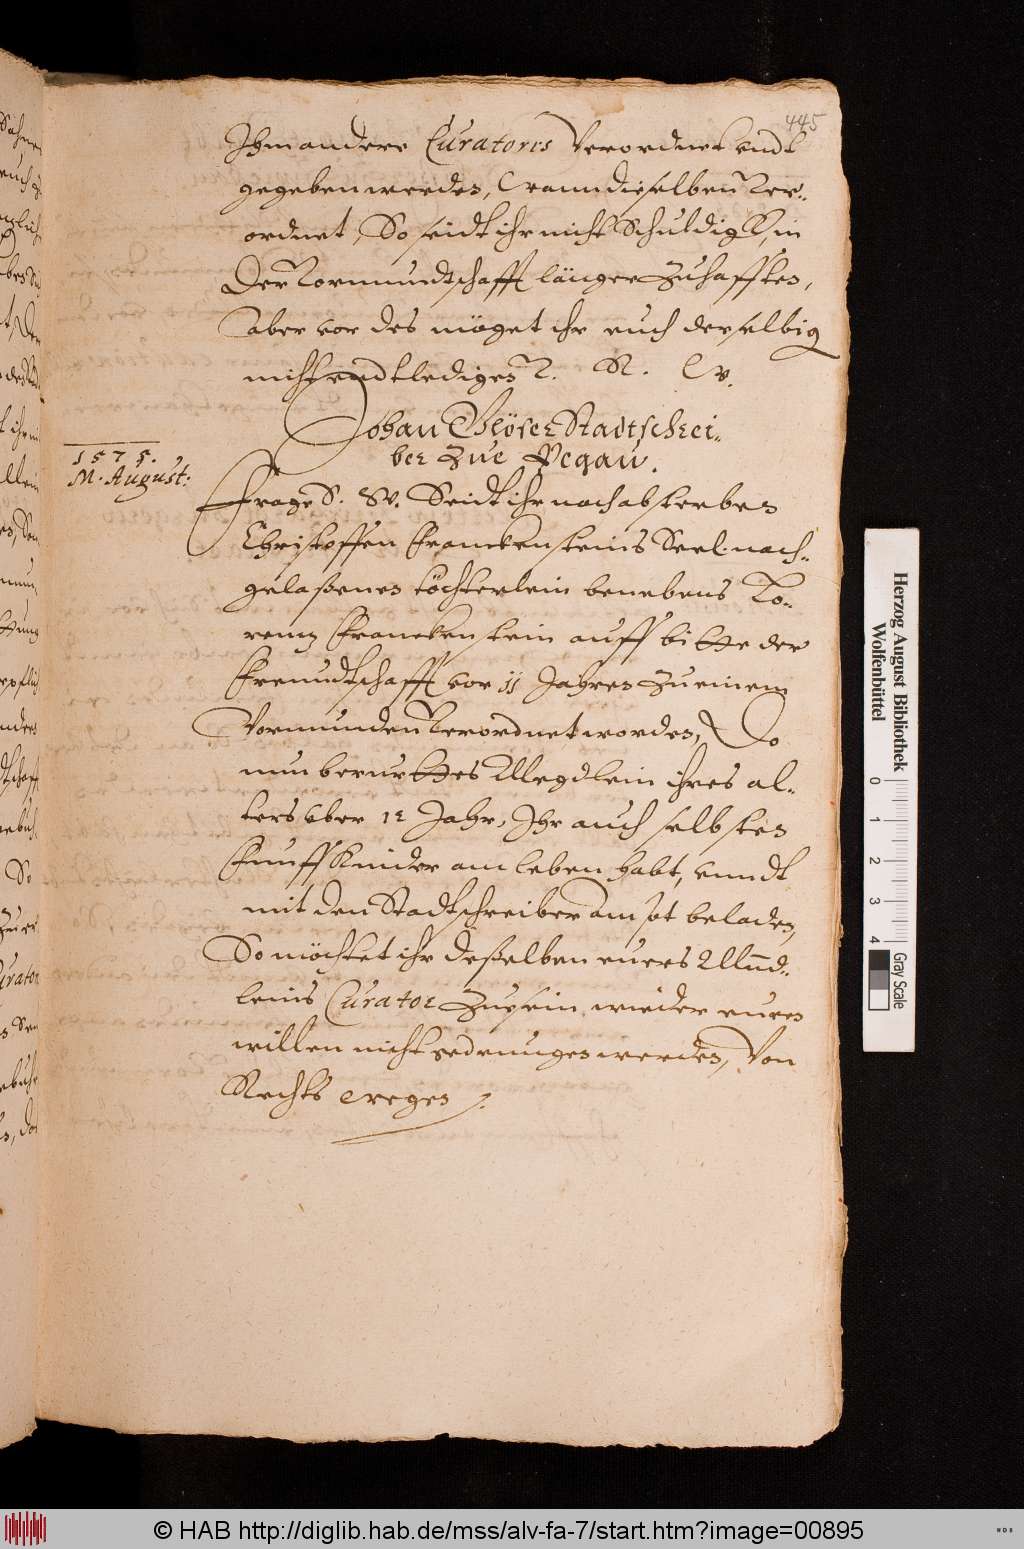 445
Ihm andere Curatores verordnet undt
gegeben werden, Wann dieselben ver-
ordnet, So seidt ihr nicht Schuldigk, in
der Vormundtschafft länger zuhafften,
aber vor des möget ihr euch derselbig
nicht endtledigen V. R. W.
Johan Glöser Stadtschrei-
ber zue Pegau.
1575.
M. August:
Frage S. W. Seidt ihr nach absterben
Christoffen Franckensteins Seel. nach-
gelaßenen töchterlein benebens Lo-
rentz Franckenstein auff bitte der
Freundtschafft vor 11 Jahren zu einem
Vormunden verordnet worden, Do
nun berurttes Megdlein ihres al-
ters uber 12 Jahr, Ihr auch selbsten
Funff Kinder am leben habt, unndt
mit den Stadtschreiber ampt beladen,
So möchtet ihr deßelben eurs Mund-
leins Curator zu sein wieder euren
willen nicht gedrungen werden, Von
Rechts wegen
Herzog August Bibliothek
Wolfenbüttel
0 1 2 3 4
Gray Scale
© HAB http://diglib.hab.de/mss/alv-fa-7/start.htm?image=00895